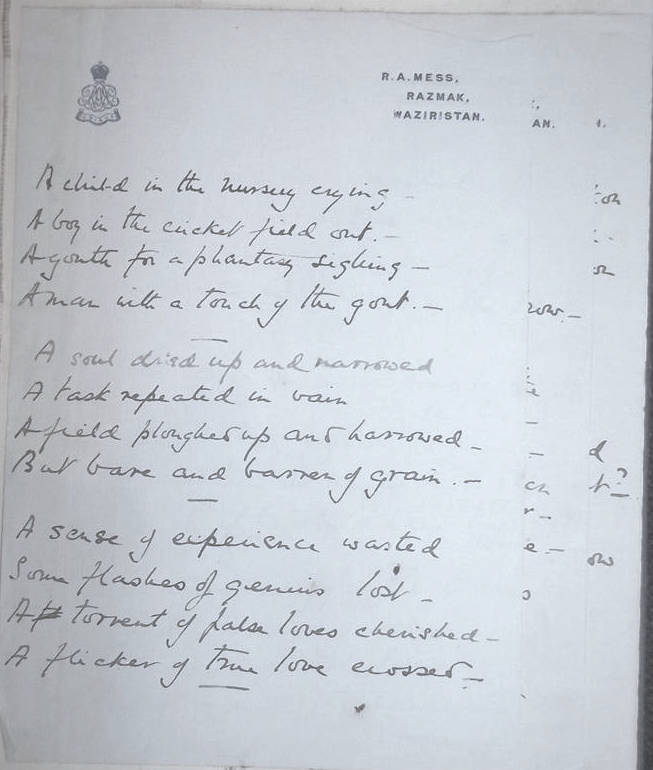 R.A. MESS,
RAZMAK,
WAZIRISTAN.
A child in the nursery crying -
A boy in the cricket field out. -
A youth for a phantasy sighing -
A man with a touch of the gout. -
A soul dried up and narrowed
A task repeated in vain
A field ploughed up and harrowed -
But bare and barren of grain. -
A sense of experience wasted
Some flashes of genius lost -
A torrent of false loves cherished -
A flicker of true love crossed -
AN.
ow